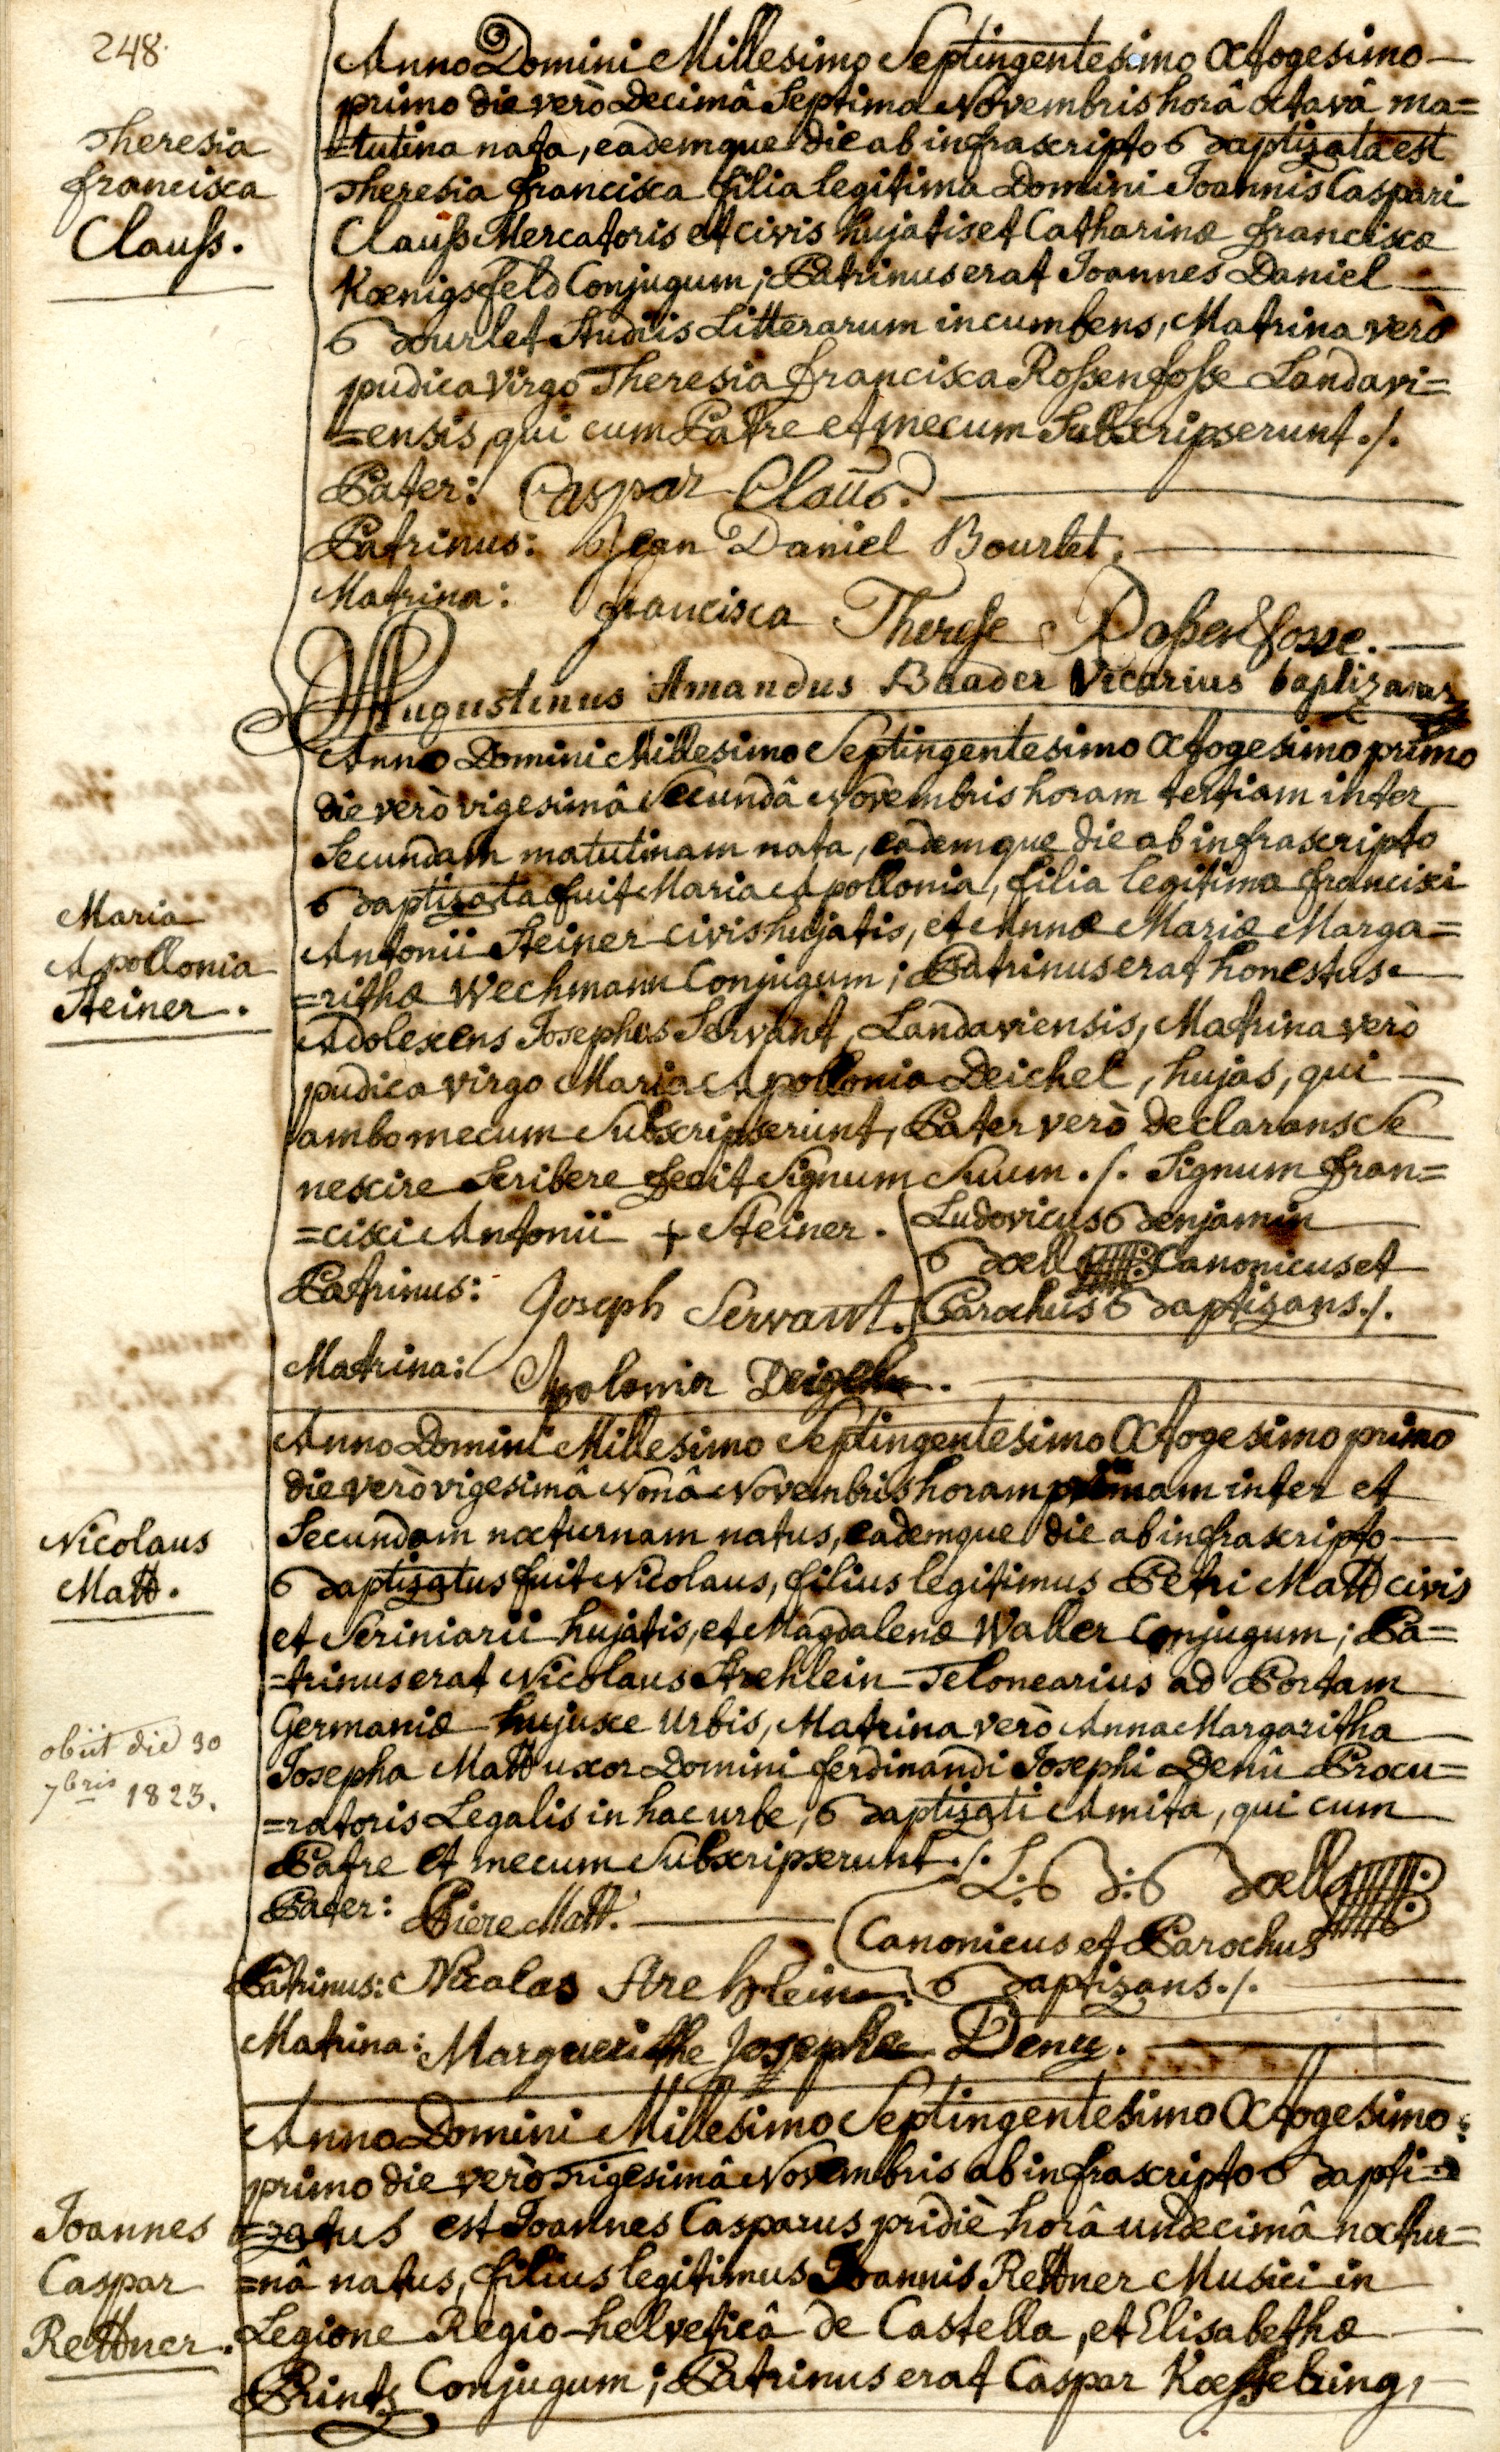 248.
Theresia
Francisca
Clauß.
Anno Domini Millesimo Septingentesimo Octogesimo
primo die verò Decimâ Septima Novembris horâ octavâ ma=
=tutina nata, eademque die ab infrascripto Baptizata est
Theresia Francisca filia legitima Domini Joannis Caspari
Clauß Mercatoris et civis hujatis et Catharinæ Franciscæ
Kœnigsfeld Conjugum; Patrinus erat Joannes Daniel
Bourlet Studiis Litterarum incumbens, Matrina verò
pudica virgo Theresia Francisca Roßenfosse Landavi=
=ensis, qui cum Patre et mecum Subscripserunt ./.
Pater: Caspar Clauß.
Patrinus: Jean Daniel Bourlet.
Matrina: Francisca Therese Roßenfosse.
Augustinus Amandus Baader Vicarius baptizans
Maria
Apollonia
Steiner.
Anno Domini Millesimo Septingentesimo Octogesimo primo
die verò vigesimâ Secundâ Novembris horam tertiam inter
Secundam matutinam nata, eademque die ab infrascripto
Baptizata fuit Maria Apollonia, filia legitima Francisci
Antonii Steiner civis hujatis, et Annæ Mariæ Marga=
=rithæ Wechmann Conjugum; Patrinus erat honestus
Adolescens Josephus Servant, Landaviensis, Matrina verò
pudica virgo Maria Apollonia Deichel, hujas, qui
ambo mecum Subscripserunt, Pater verò declarans Se
nescire Scribere fecit Signum Suum ./. Signum Fran=
=cisci Antonii + Steiner.
Ludovicus Benjamin
Bœll Canonicus et
Parochus Baptizans ./.
Patrinus: Joseph Servant.
Matrina: Apolonia
Nicolaus
Matt.
obiit die 30
7bris 1823.
Anno Domini Millesimo Septingentesimo Octogesimo primo
die verò vigesimâ Nonâ Novembris horam primam inter et
Secundam nocturnam natus, eademque die ab infrascripto
Baptizatus fuit Nicolaus, filius legitimus Petri Matt civis
et Scriniarii hujatis, et Magdalenæ Waller Conjugum; Pa=
=trinus erat Nicolaus Strehlein Telonearius ad Portam
Germaniæ hujusce Urbis, Matrina verò Anna Margaritha
Josepha Matt uxor Domini Ferdinandi Josephi Denû Procu=
=ratoris Legalis in hac urbe, Baptizati Amita, qui cum
Patre et mecum Subscripserunt ./.
L: B: Bœll
Canonicus et Parochus
Baptizans ./.
Pater: Piere Matt.
Patrinus: Nicolas Strehlein.
Matrina: Marguerithe Josephe Deny.
Joannes
Caspar
Rettner.
Anno Domini Millesimo Septingentesimo Octogesimo
primo die verò Trigesimâ Novembris ab infrascripto Bapti=
=zatus est Joannes Casparus pridiè horâ undecimâ noctur=
=nâ natus, filius legitimus Joannis Rettner Musici in
Legione Regio-helveticâ de Castella, et Elisabethæ
Printz Conjugum; Patrinus erat Caspar